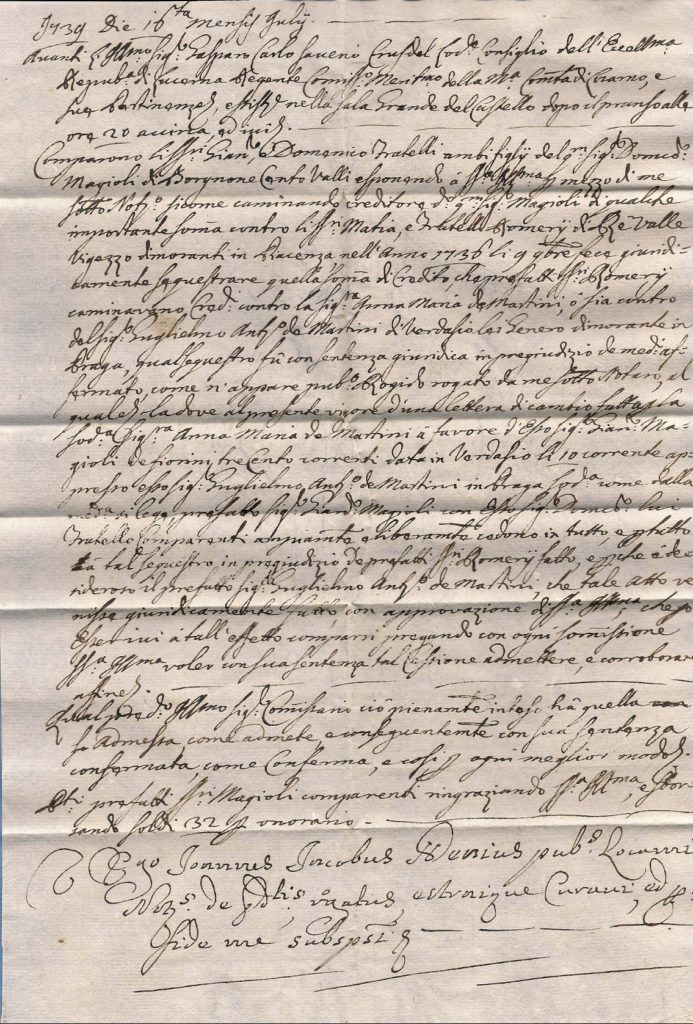 1739 Die 16ta mensis July.
Avanti l'Illmo Sig.r Gasparo Carlo Saverio del Consiglio dell'Eccelma
Repub.a di Lucerna Regente Comiss.o Meritmo della Mca Comtà di Locarno, e
sue Pertinenze, nella Sala Grande del Castello dopo il pranso alle
ore 20 accirca, ed ivi
Comparono li SSri Gian, e Domenico Fratelli ambi figlij del qm Sig.r Domco
Magioli di Borgnone Cento Valli esponendo á SSa Illma p mezzo di me
sotto Noto sicome caminando creditore d.o Sig.r Magioli di qualche
importante soma contro li SSri Matia, e Fratelli Romerij di Re Valle
Vigezzo dimoranti in nell'Anno 1736 li 9 fece giuridi-
camente sequestrare quella soma di Credito, che prefatti SSri Romerij
caminavano Cred.i contro la Sig.ra Anna Maria de Martini ó sia contro
del Sig.r Guglielmo Ant.o de Martini di Verdasio lei Genero dimorante in
Praga, qual sequestro fú con sentenza giuridica in pregiudizio de medi af-
fermato, come n'appare pub.o Rogito rogato da me sotto Notaro, al
quale la dove al presente vigore d'una lettera di cambio fatta p la
sod.a Sig.ra Anna Maria de Martini á favore d'Esso Sig.r Gian Ma-
gioli de fiorini tre Cento correnti data in Verdasio li 10 corrente ap-
presso esso Sig.r Guglielmo Ant.o de Martini in Praga sod.a come dalla
si legge, prefatto Sig.r Gian Magioli con esso Sig.r Domco lui
Fratello Comparenti ampiamte e liberamte cedono in tutto e p tutto
á tal sequestro, in pregiudizio de prefatti SSri Romerij fatto, e pche é de-
sideroso il prefatto Sig.r Guglielmo Ant.o de Martini, che tale Atto ve-
nisse giuridicamente fatto con approvazione di SSa Illma, che p
Esser ivi á tall'effetto comparsi pregando con ogni somissione
SSa Illma voler con sua sentenza tal Cessione admettere, e corroborare
affine.
Qual d.o Illmo Sig.r Comissario ció pienamte inteso há quella
Admessa, come admete, e conseguentemte con sua sentenza
confermata, come Conferma, e cosi p ogni meglior modo.
prefatti SSri Magioli comparenti ringraziando SSa Illma, e sbor-
sando soldi 32 p onorario.
Ego Joannes Jacobus pub.s Locarni
Nots de rogatus, estraique Curavi, ed p
fide me subspsi